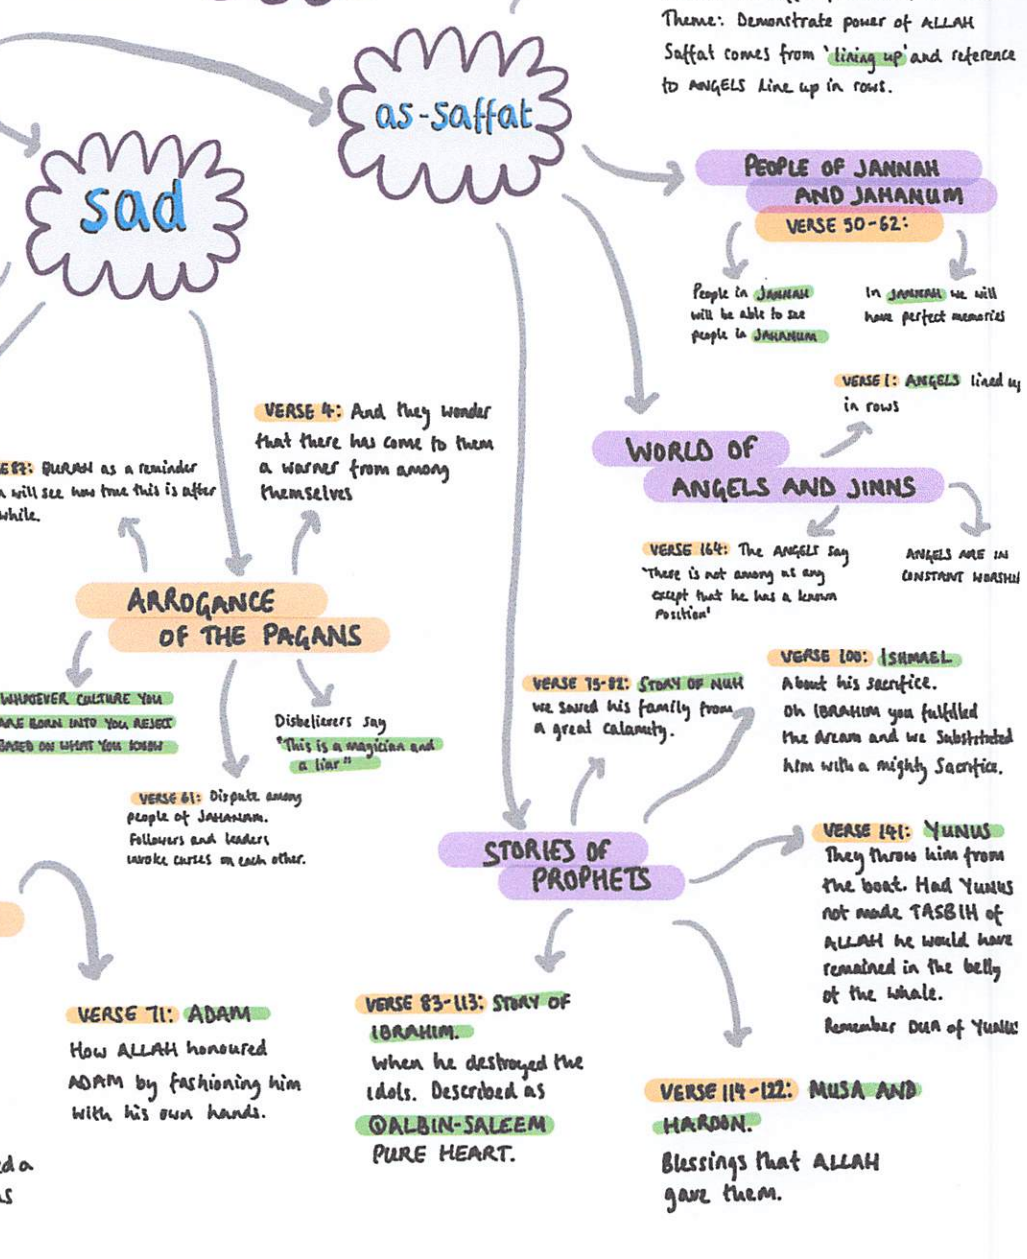 Theme: Demonstrate power of ALLAH
Saffat comes from 'lining up' and reference
to ANGELS line up in rows.
as-saffat
sad
PEOPLE OF JANNAH
AND JAHANUM
VERSE 50-62:
People in JANNAH
will be able to see
people in JAHANUM
In JANNAH we will
have perfect memories
VERSE 1: ANGELS lined
in rows
WORLD OF
ANGELS AND JINNS
VERSE 164: The ANGELS say
'There is not among us any
except that he has a known
Position'
ANGELS ARE IN
CONSTANT
VERSE 4: And they wonder
that there has come to them
a warner from among
themselves
87: QURAN as a reminder
will see how true this is after
while.
ARROGANCE
OF THE PAGANS
WHATEVER CULTURE YOU
ARE BORN INTO YOU REJECT
BASED ON WHAT YOU KNOW
Disbelievers say
"This is a magician and
a liar"
VERSE 61: Dispute among
people of JAHANAM.
Followers and leaders
invoke curses on each other.
VERSE 75-82: STORY OF NUH
we saved his family from
a great calamity.
VERSE 100: ISHMAEL
About his sacrifice.
Oh IBRAHIM you fulfilled
the dream and we substituted
him with a mighty Sacrifice.
STORIES OF
PROPHETS
VERSE 141: YUNUS
They throw him from
the boat. Had YUNUS
not made TASBIH of
ALLAH he would have
remained in the belly
of the whale.
Remember DUA of YUNUS
VERSE 71: ADAM
How ALLAH honoured
ADAM by fashioning him
with his own hands.
VERSE 83-113: STORY OF
IBRAHIM.
When he destroyed the
idols. Described as
QALBIN-SALEEM
PURE HEART.
VERSE 114-122: MUSA AND
HAROON.
Blessings that ALLAH
gave them.